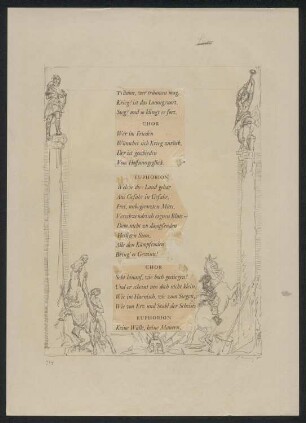 Träume, wer träumen mag.
Krieg! ist das Losungswort.
Sieg! und so klingt es fort.
CHOR
Wer im Frieden
Wünschet sich Krieg zurück,
Der ist geschieden
Vom Hoffnungsglück.
EUPHORION
Welche dies Land gebar
Aus Gefahr in Gefahr,
Frei, unbegrenzten Muts,
Verschwendrisch eignen Bluts –
Dem nicht zu dämpfenden
Heiligen Sinn,
Alle den Kämpfenden
Bring' es Gewinn!
CHOR
Seht hinauf, wie hoch gestiegen!
Und er scheint uns doch nicht klein,
Wie im Harnisch, wie zum Siegen,
Wie von Erz und Stahl der Schein.
EUPHORION
Keine Wälle, keine Mauern,